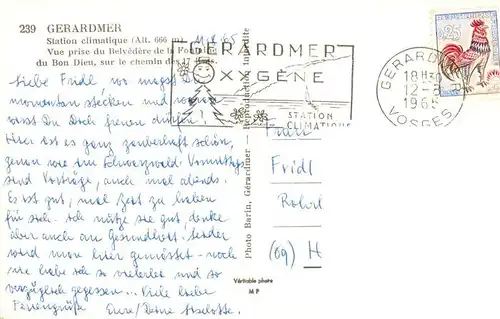 239 GERARDMER
Station climatique (Alt. 666 m)
Vue prise du Belvédère de la Fontaine
du Bon Dieu, sur le chemin des 17
GERARDMER
OXYGÈNE
STATION
CLIMATIQUE
0,25
GERARDMER
18H30
12-8
1965
VOSGES
Liebe Fridl wo magst Du
momentan stecken und
wirst Du Dich freuen dürfen?
Hier ist es ganz zauberhaft schön,
genau wie im Schwarzwald. Vormittags
sind Vorträge, auch mal abends.
Es ist gut, mal Zeit zu haben
für sich. Ich nütze sie gut, denke
aber auch an Gesundheit. Leider
wird man hier gemästet - noch
nie habe ich so vielerlei und so
vorzüglich gegessen... Viele liebe
Feriengrüße Eure/Deine Liselotte.
Photo Barin, Gérardmer — Reproduction Interdite
Fridl
Rohrl
(09) H
Véritable photo
M P